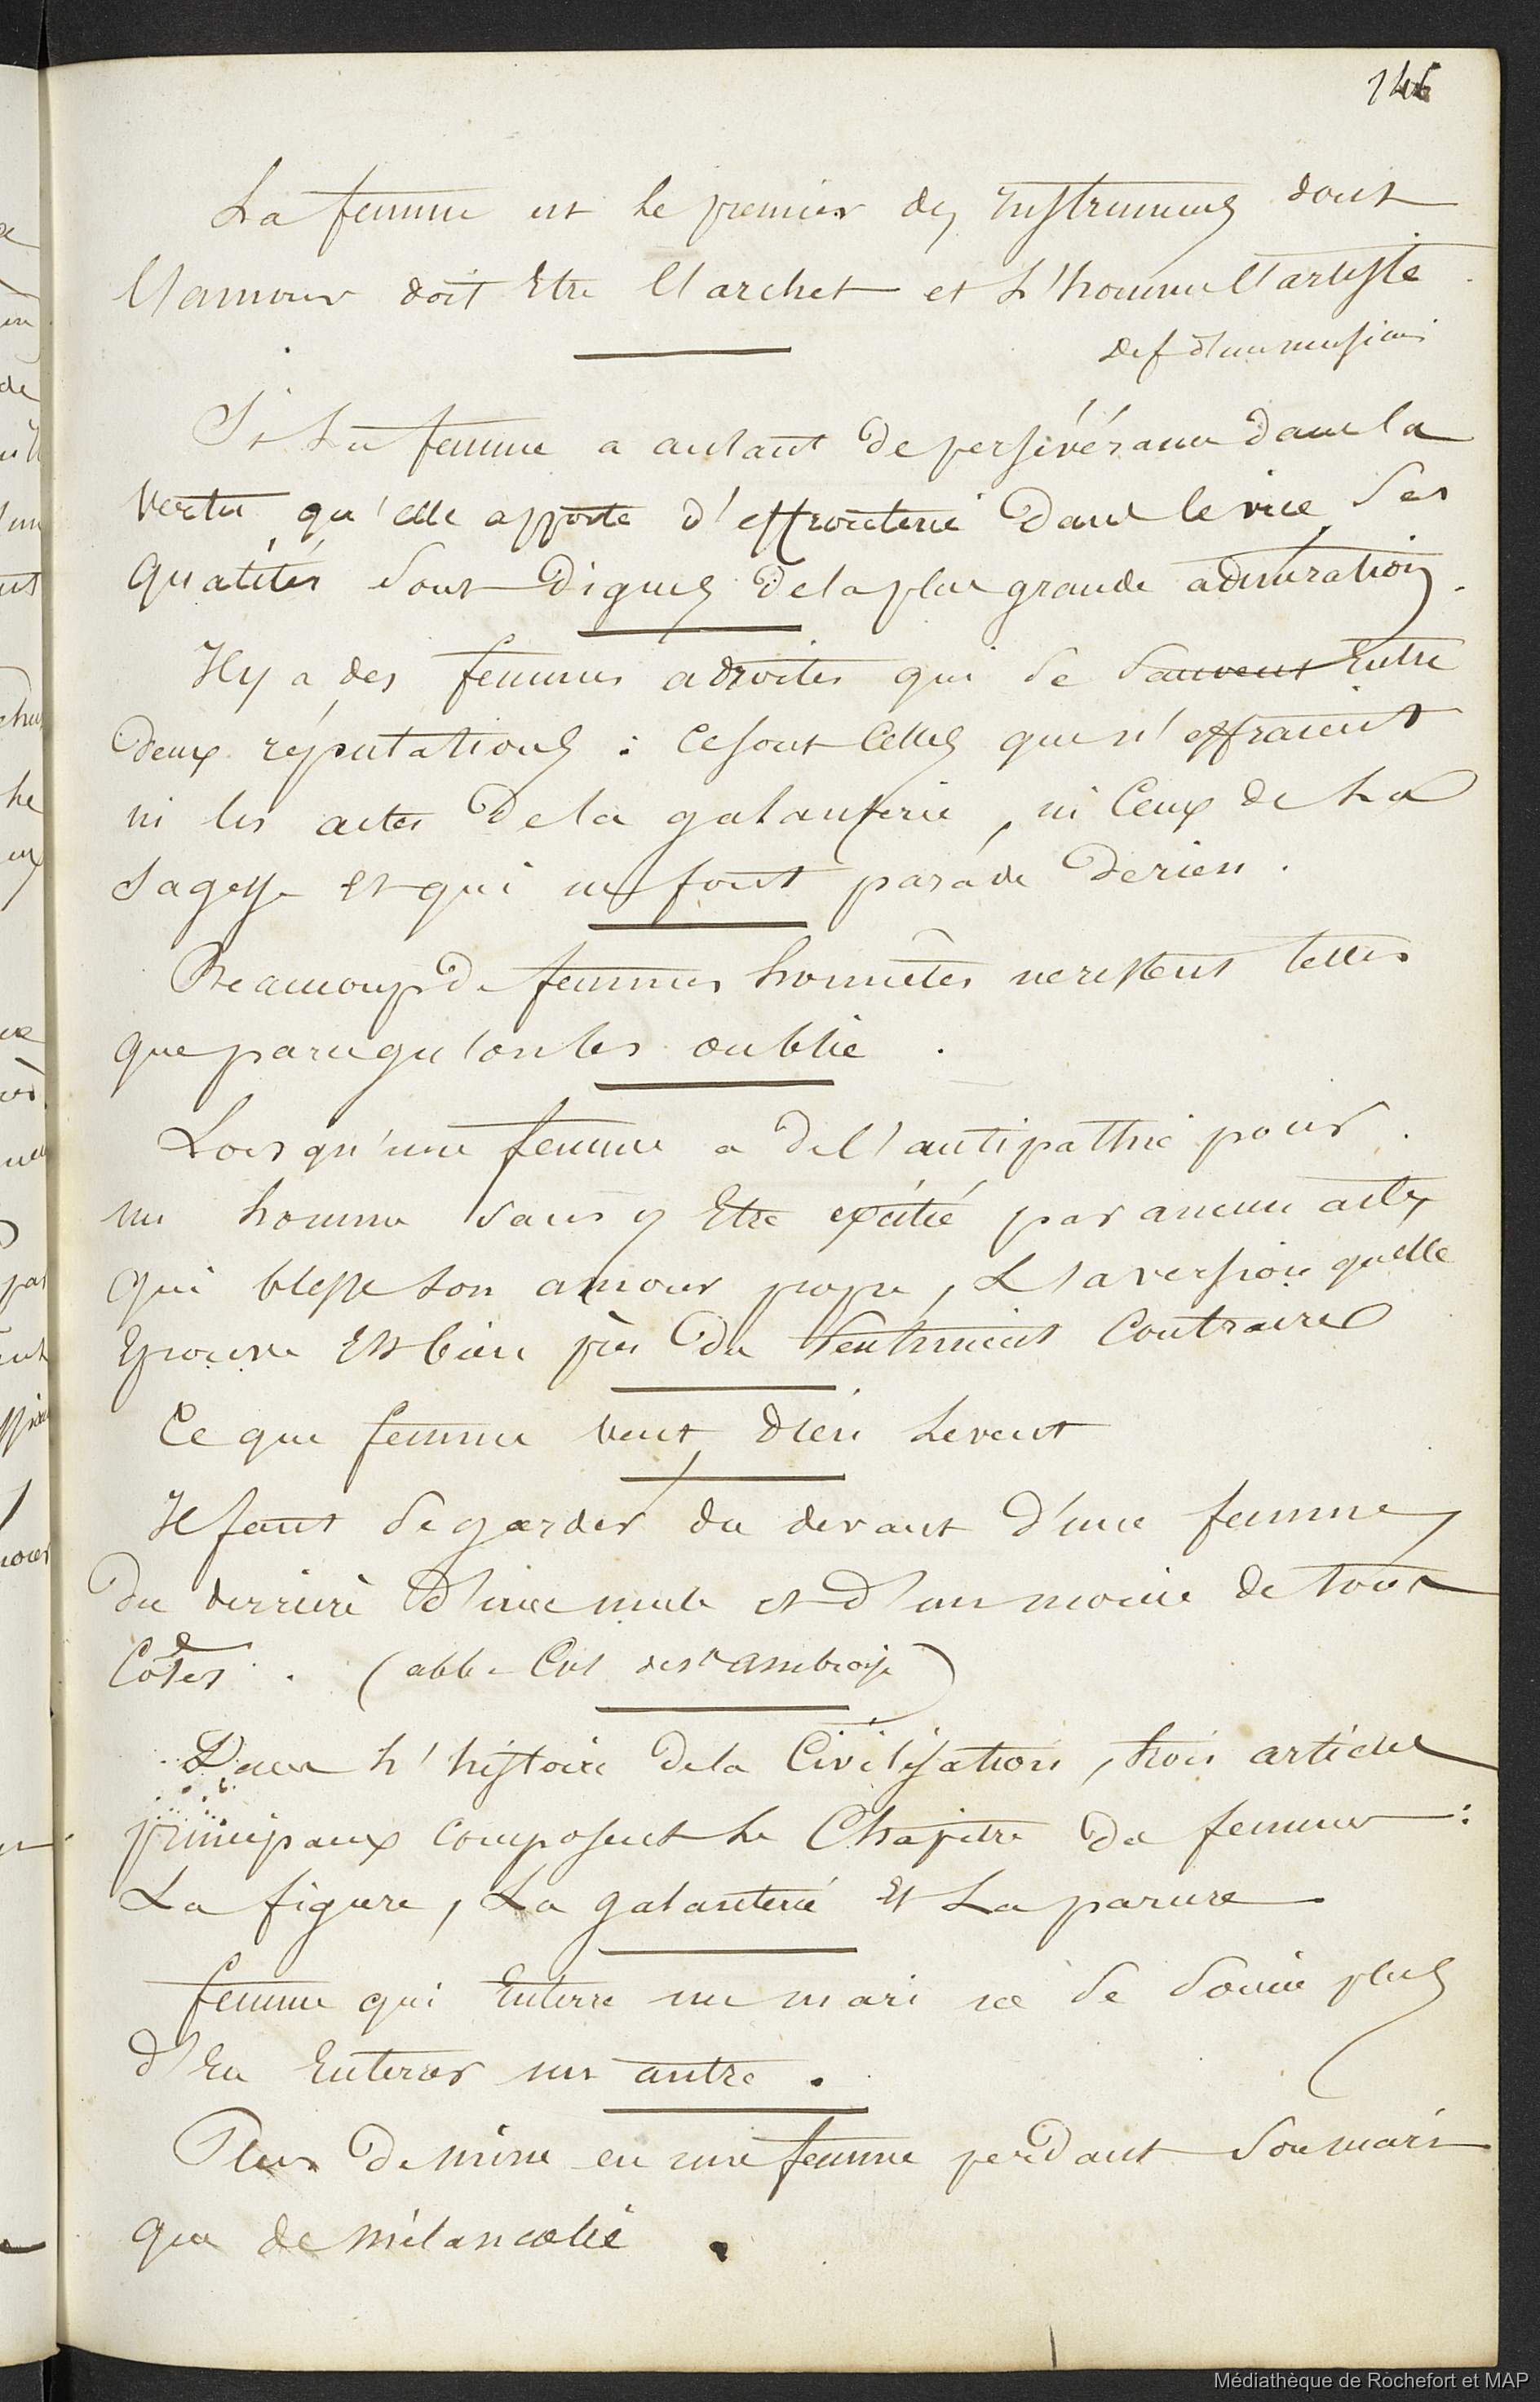 146
La femme est le premier des Instrumens dont
l'amour doit Etre l'archet et L'homme l'artiste.
def d'un musicien
Si La femme a autant de persévérance dans la
vertu qu'elle apporte d'effronterie dans le vice, Ses
qualités Sont dignes de la plus grande admiration.
Il y a des femmes adroites qui Se Sauvent Entre
deux réputations : Ce sont Celles que n'effraient
ni les actes de la galanterie, ni Ceux de La
Sagesse et qui ne font parade de rien.
Beaucoup de femmes honnêtes ne restent telles
que parce qu'on les oublie.
Lorsqu'une femme a de l'antipathie pour
un homme Sans y Etre excitée par aucun acte
qui blesse Son amour propre, L'aversion qu'elle
Eprouve Est bien près du Sentiment Contraire
Ce que femme veut, Dieu Le veut
Il faut Se garder du devant d'une femme,
du derrière d'une mule et d'un moine de tous
Cotés. (abb. de st ambroise)
Dans L'histoire de la Civilisation, trois articles
principaux composent Le Chapitre de femmes :
La figure, La galanterie Et La parure
femme qui Enterre un mari ne Se Soucie plus
d'En Enterrer un autre.
Plus de mine en une femme perdant Son mari
que de mélancolie.
Médiathèque de Rochefort et MAP